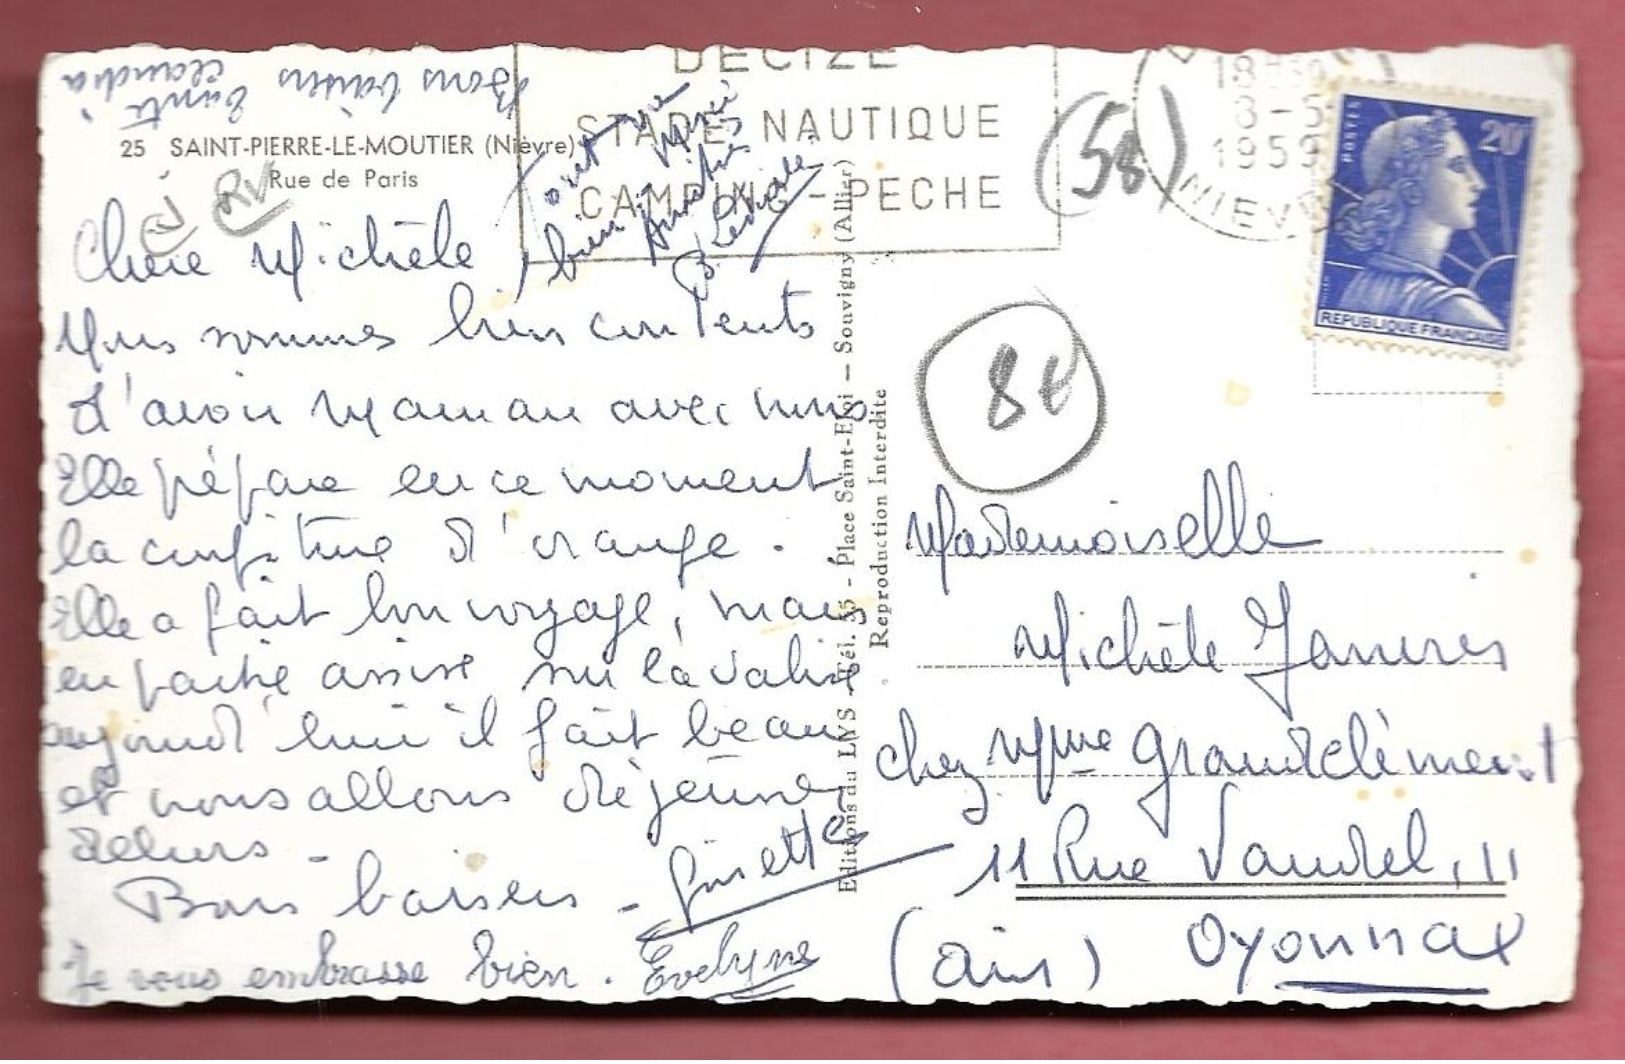 Bons baisers tante Claudia
25 SAINT-PIERRE-LE-MOUTIER (Nièvre)
Rue de Paris
RV
Chère Michèle,
Nous sommes bien contents
d'avoir Maman avec nous.
Elle prépare en ce moment
la confiture d'orange.
Elle a fait bon voyage, mais
en partie assise sur la valise
aujourd'hui il fait beau
et nous allons déjeuner
dehors -
Bons baisers - Ginette
Je vous embrasse bien. Evelyne
bien
Editions du LYS - Tél. 35 - Place Saint-Eloi - Souvigny (Allier)
Reproduction Interdite
DECIZE
STADE NAUTIQUE
CAMPING - PECHE
(58)
18
8-5
1959
NIEVRE
POSTES
20F
REPUBLIQUE FRANÇAISE
8t
Mademoiselle
Michèle
chez Mme Grandclément
11 Rue Vandel, 11
(Ain) Oyonnax